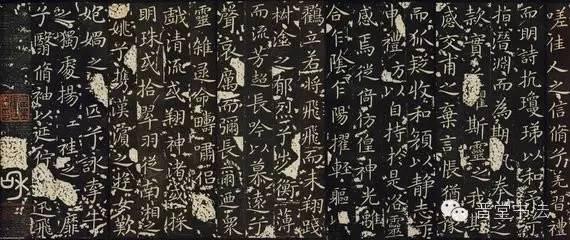 嗟佳人之信脩兮羌習禮
而明詩抗瓊珶以和
指潛淵而為期執拳
款實懼斯靈之我
感交甫之棄言悵猶
而狐疑收和顏以靜志兮
申禮方以自持於是洛靈
感焉徙倚彷徨神光離
合乍陰乍陽擢輕軀以
鸛立若將飛飛而未翔踐
椒塗之郁烈兮步衡薄
而流芳超長吟以慕遠兮
聲哀厲而彌長爾迺衆
靈雜遝命疇嘯侶
戲清流或翔神渚或採
明珠或拾翠羽從南湘之二
姚兮攜漢濱之遊女歎
妃媧之匹兮詠牽牛
之獨處揚袿之靡
兮翳脩袖以延佇迅飛
晋堂书法